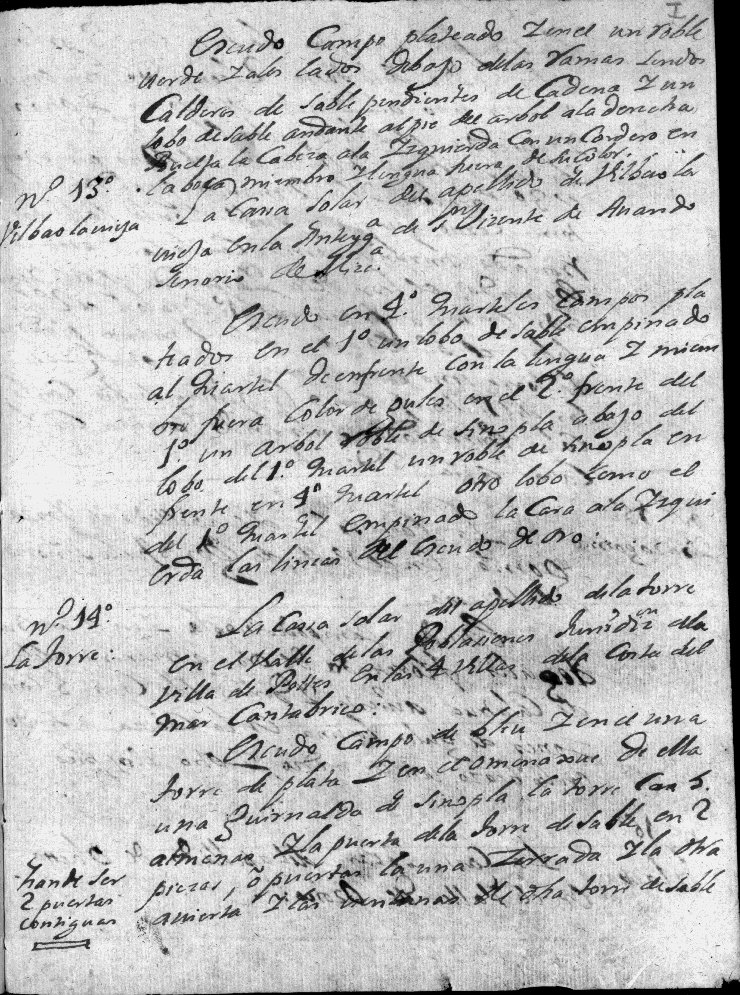 I
Escudo Campo plateado Zenel un roble
verde Zalos lados debajo delas ramas sendos
Calderos de sable pendientes de Cadena Zun
lobo de sable andante alpie del arbol ala derecha
la Cabeza ala Izquierda con un Cordero en
la boca, miembro Zlengua fuera de su color.
nº 13º
Vilbao la vieja
La Cassa Solar del apellido de Vilbao la
vieja en la Anteygª de Sn Vizente de Auando
Senorio de Vizcª
Escudo en 4º quarteles Campos pla
teados en el 1º un lobo de sable empinado
al quartel de enfrente con la lengua Z miem
bro fuera Color de gules en el 2º frente del
1º un arbol roble de sinopla abajo del
lobo del 1º quartel un roble de sinopla en
frente en 4º quartel otro lobo como el
del 1º quartel empinado la Cara ala Izqui
erda las lineas del escudo de oro.
nº 14º
La Torre:
La Cassa solar del apellido dela torre
en el Valle de las Poblaciones Jurisdizon dela
Villa de Potes en las 4 Villas dela Costa del
mar Cantabrico.
Escudo Campo de bleu Zenel una
torre de plata Z en el omenaxe de ella
una Guirnalda de sinopla la torre Con 5.
almenas Zla puerta dela torre de sable, en 2
piezas, ô puertas la una Zerrada Zla otra
avierta Zlas ventanas de dha torre de sable
han de ser
2 puertas
contiguas